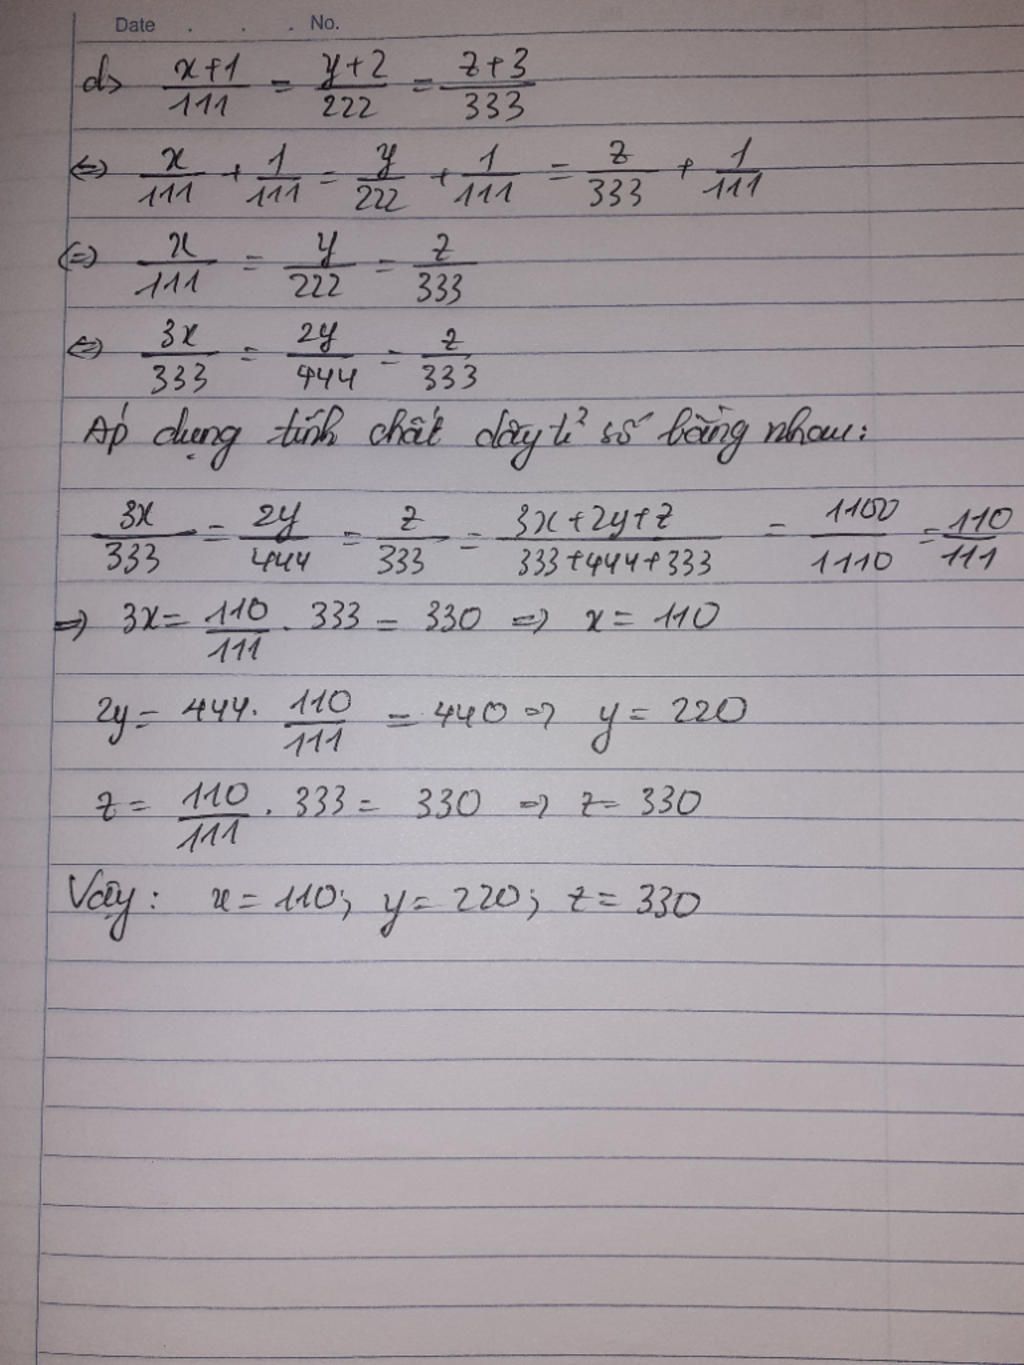 Date . . . No.
d> x+1/111 = y+2/222 = z+3/333
⇔ x/111 + 1/111 = y/222 + 1/111 = z/333 + 1/111
⇔ x/111 = y/222 = z/333
⇔ 3x/333 = 2y/444 = z/333
Áp dụng tính chất dãy tỉ số bằng nhau:
3x/333 = 2y/444 = z/333 = 3x+2y+z/333+444+333 = 1100/1110 = 110/111
⇒ 3x = 110/111 . 333 = 330 ⇒ x = 110
2y = 444 . 110/111 = 440 ⇒ y = 220
z = 110/111 . 333 = 330 ⇒ z = 330
Vậy: x = 110; y = 220; z = 330